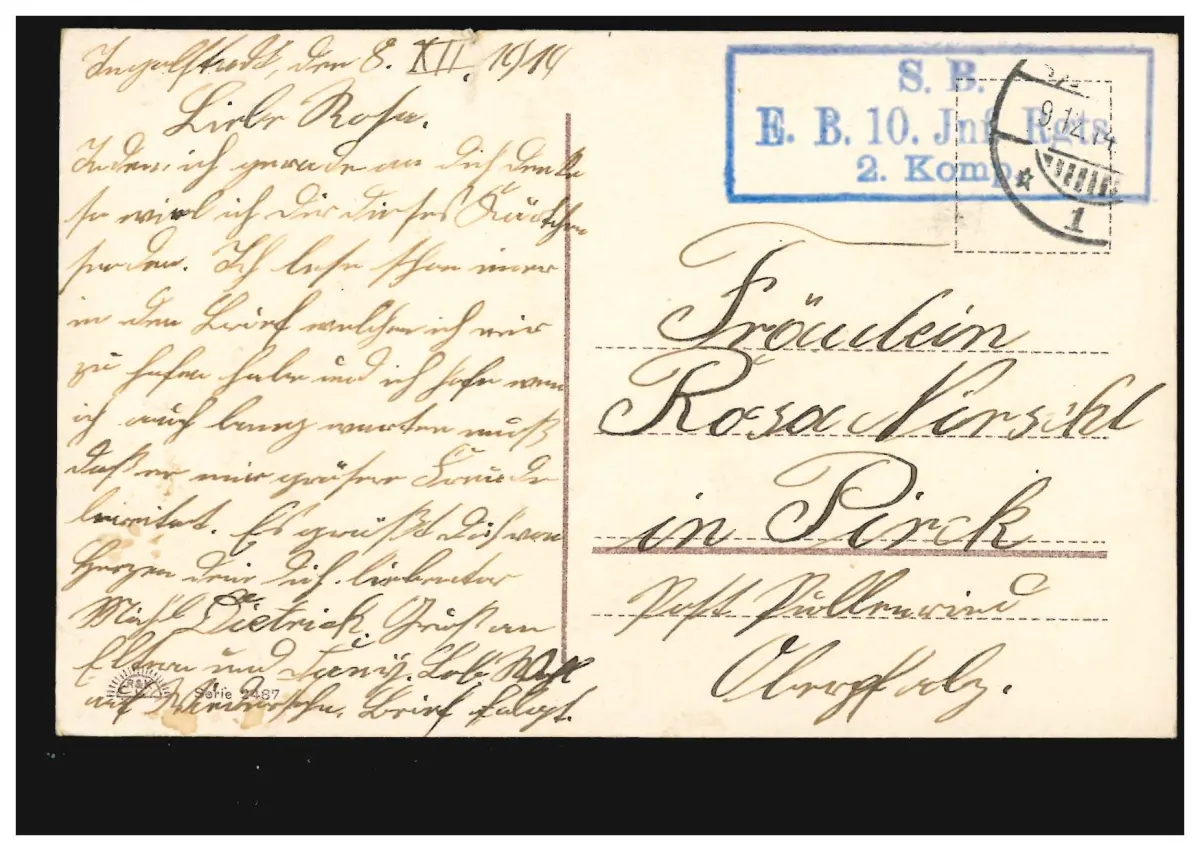 Ingolstadt, den 8. XII. 1914
Liebe Rosa.
Indem ich gerade an dich denke
so will ich dir dieses Kärtchen
senden. Ich lese schon imer
in den Brief welchen ich mir
zu hofen habe und ich hofe wen
ich auch lang warten muß
daß er mir größere Freude
bereitet. Es grüßt dich von
Herzen dein dich liebenter
Michl Dietrich. Gruß an
Eltern und Fany. Leb Wohl
auf Wiedersehn. Brief folgt.
R&K
Serie 2487
S. B.
E. B. 10. Jnf. Rgts.
2. Komp.
9.12.14
1
Fräulein
Rosa Nirschl
in Pirck
Post Pullenried
Oberpfalz.